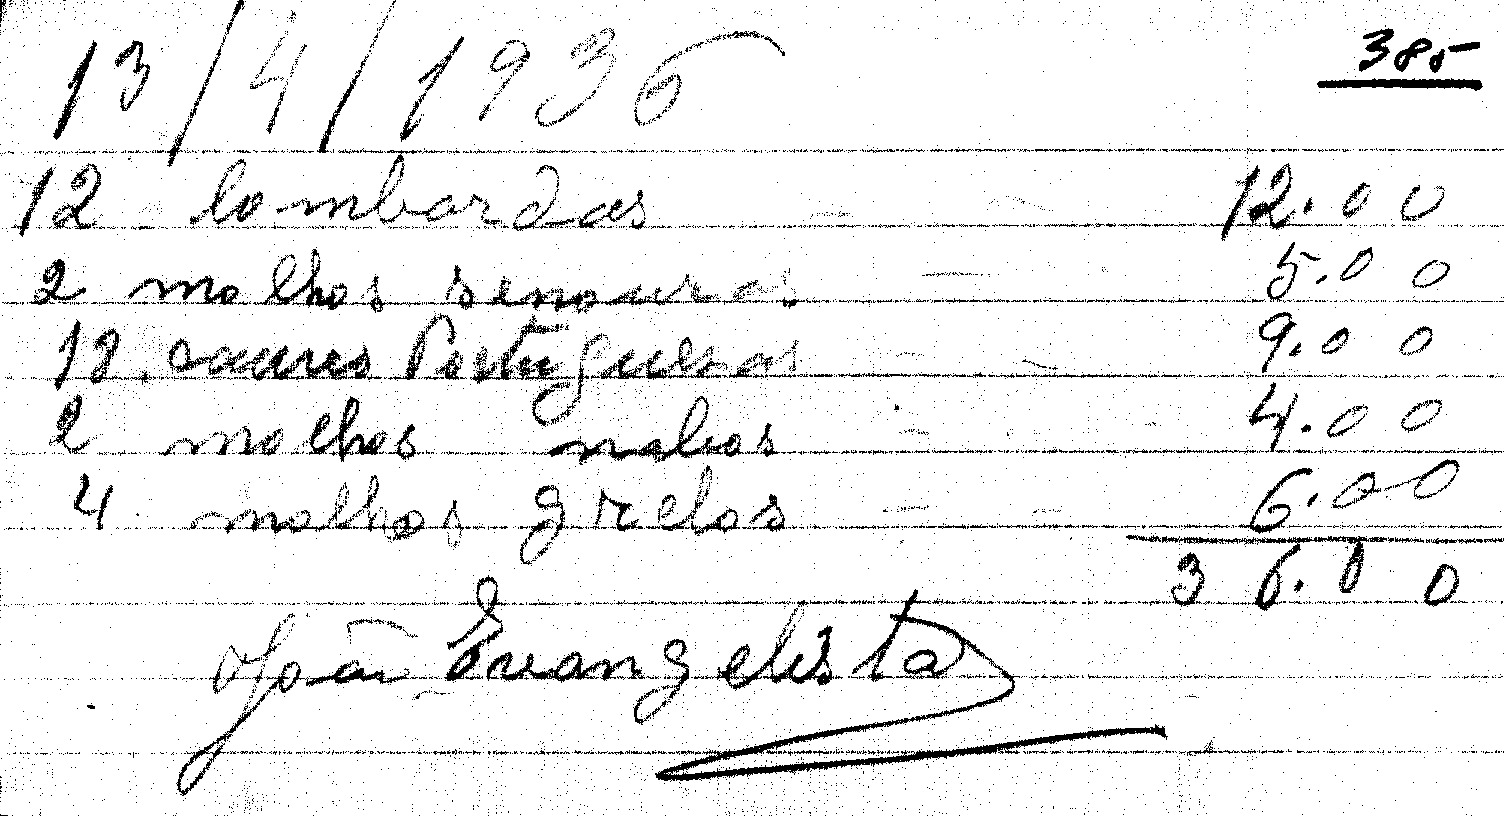 13/4/1936
385
12 lombardas - - 12.00
2 molhos senouras - 5.00
18 couves Portuguesas - - 9.00
2 molhos nabos - - 4.00
4 molhos grelos - - 6.00
36.00
João Evangelista